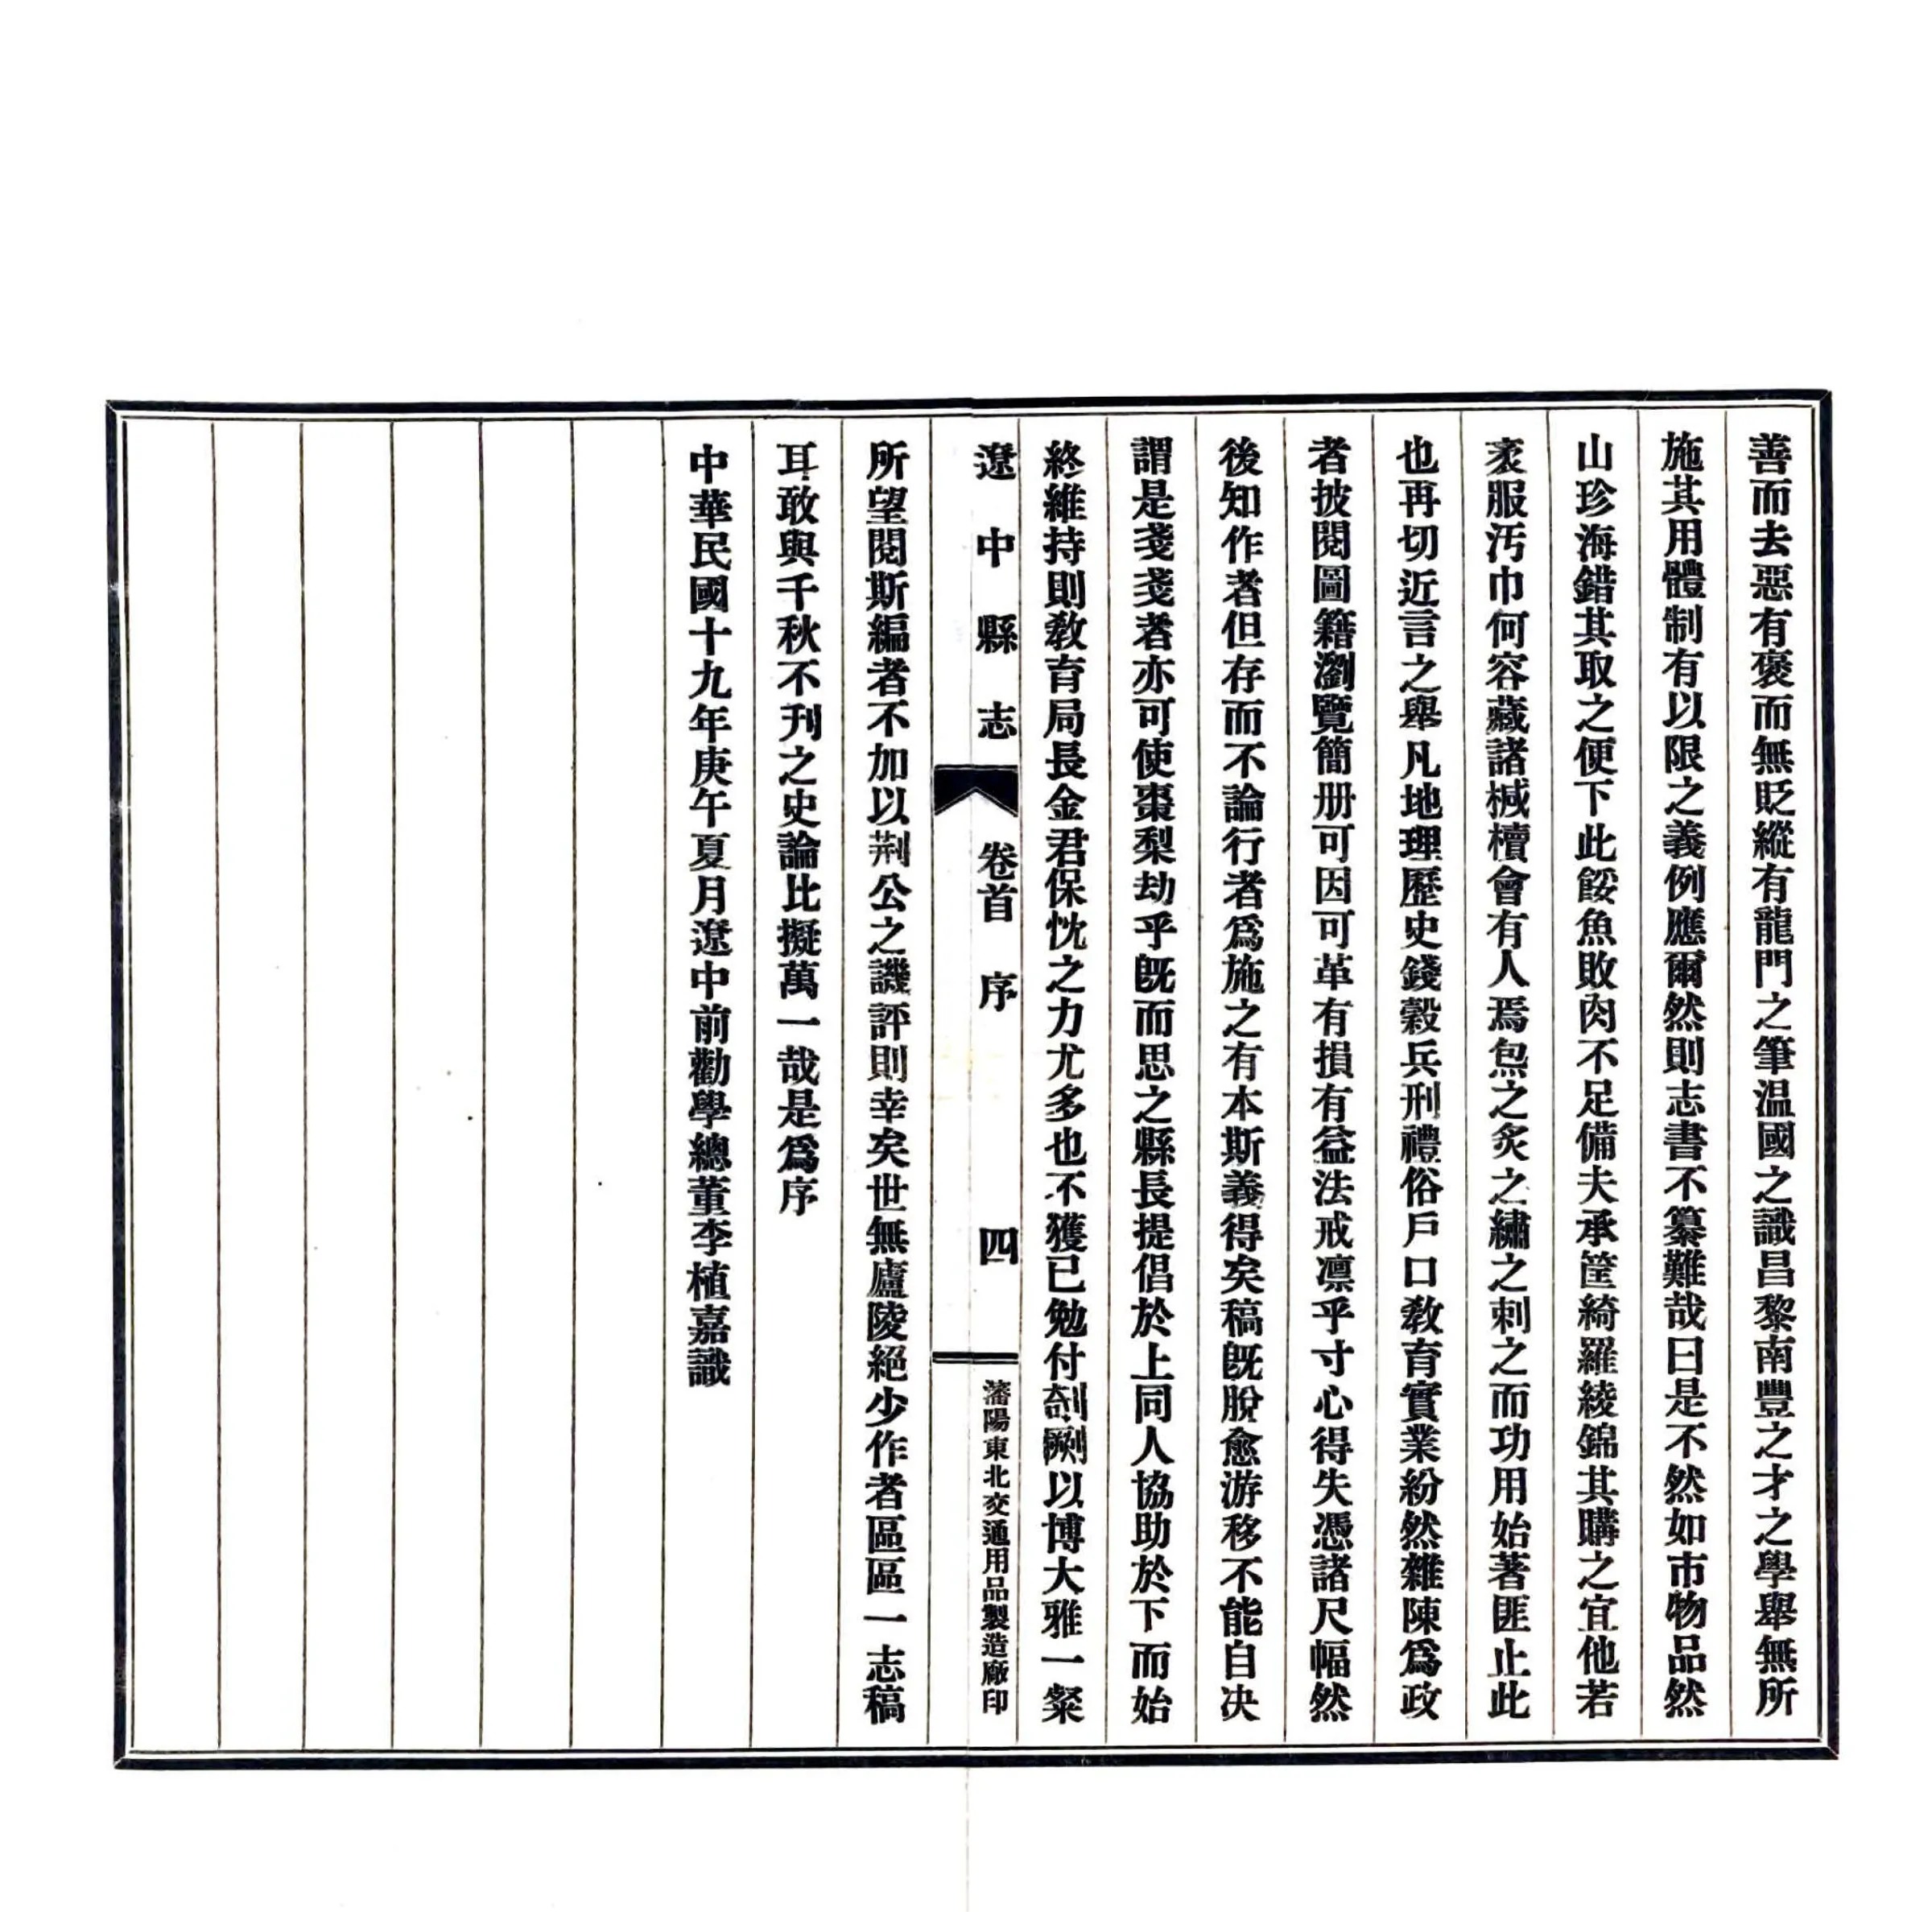 善而去惡有褒而無貶縱有龍門之筆温國之識昌黎南豐之才之學舉無所
施其用體制有以限之義例應爾然則志書不纂難哉曰是不然如市物品然
山珍海錯其取之便下此餒魚敗肉不足備夫承筐綺羅綾錦其購之宜他若
衺服汚巾何容藏諸椷櫝會有人焉炰之炙之繡之刺之而功用始著匪止此
也再切近言之舉凡地理歷史錢穀兵刑禮俗戶口敎育實業紛然雜陳爲政
者披閱圖籍瀏覽簡册可因可革有損有益法戒凛乎寸心得失憑諸尺幅然
後知作者但存而不論行者爲施之有本斯義得矣稿旣脫愈游移不能自决
謂是戔戔者亦可使棗梨劫乎旣而思之縣長提倡於上同人協助於下而始
終維持則敎育局長金君保忱之力尤多也不獲已勉付剞劂以博大雅一粲
遼中縣志 卷首 序 四 瀋陽東北交通用品製造廠印
所望閱斯編者不加以荆公之譏評則幸矣世無廬陵絕少作者區區一志稿
耳敢與千秋不刋之史論比擬萬一哉是爲序
中華民國十九年庚午夏月遼中前勸學總董李植嘉識